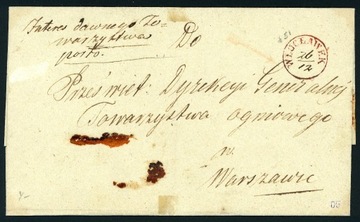 Interes dawnego To-
warzystwa
porto.
Do
WŁOCŁAWEK
26/12
Przeświet: Dyrekcyi Generalnéj
Towarzystwa ogniowego
w
Warszawie